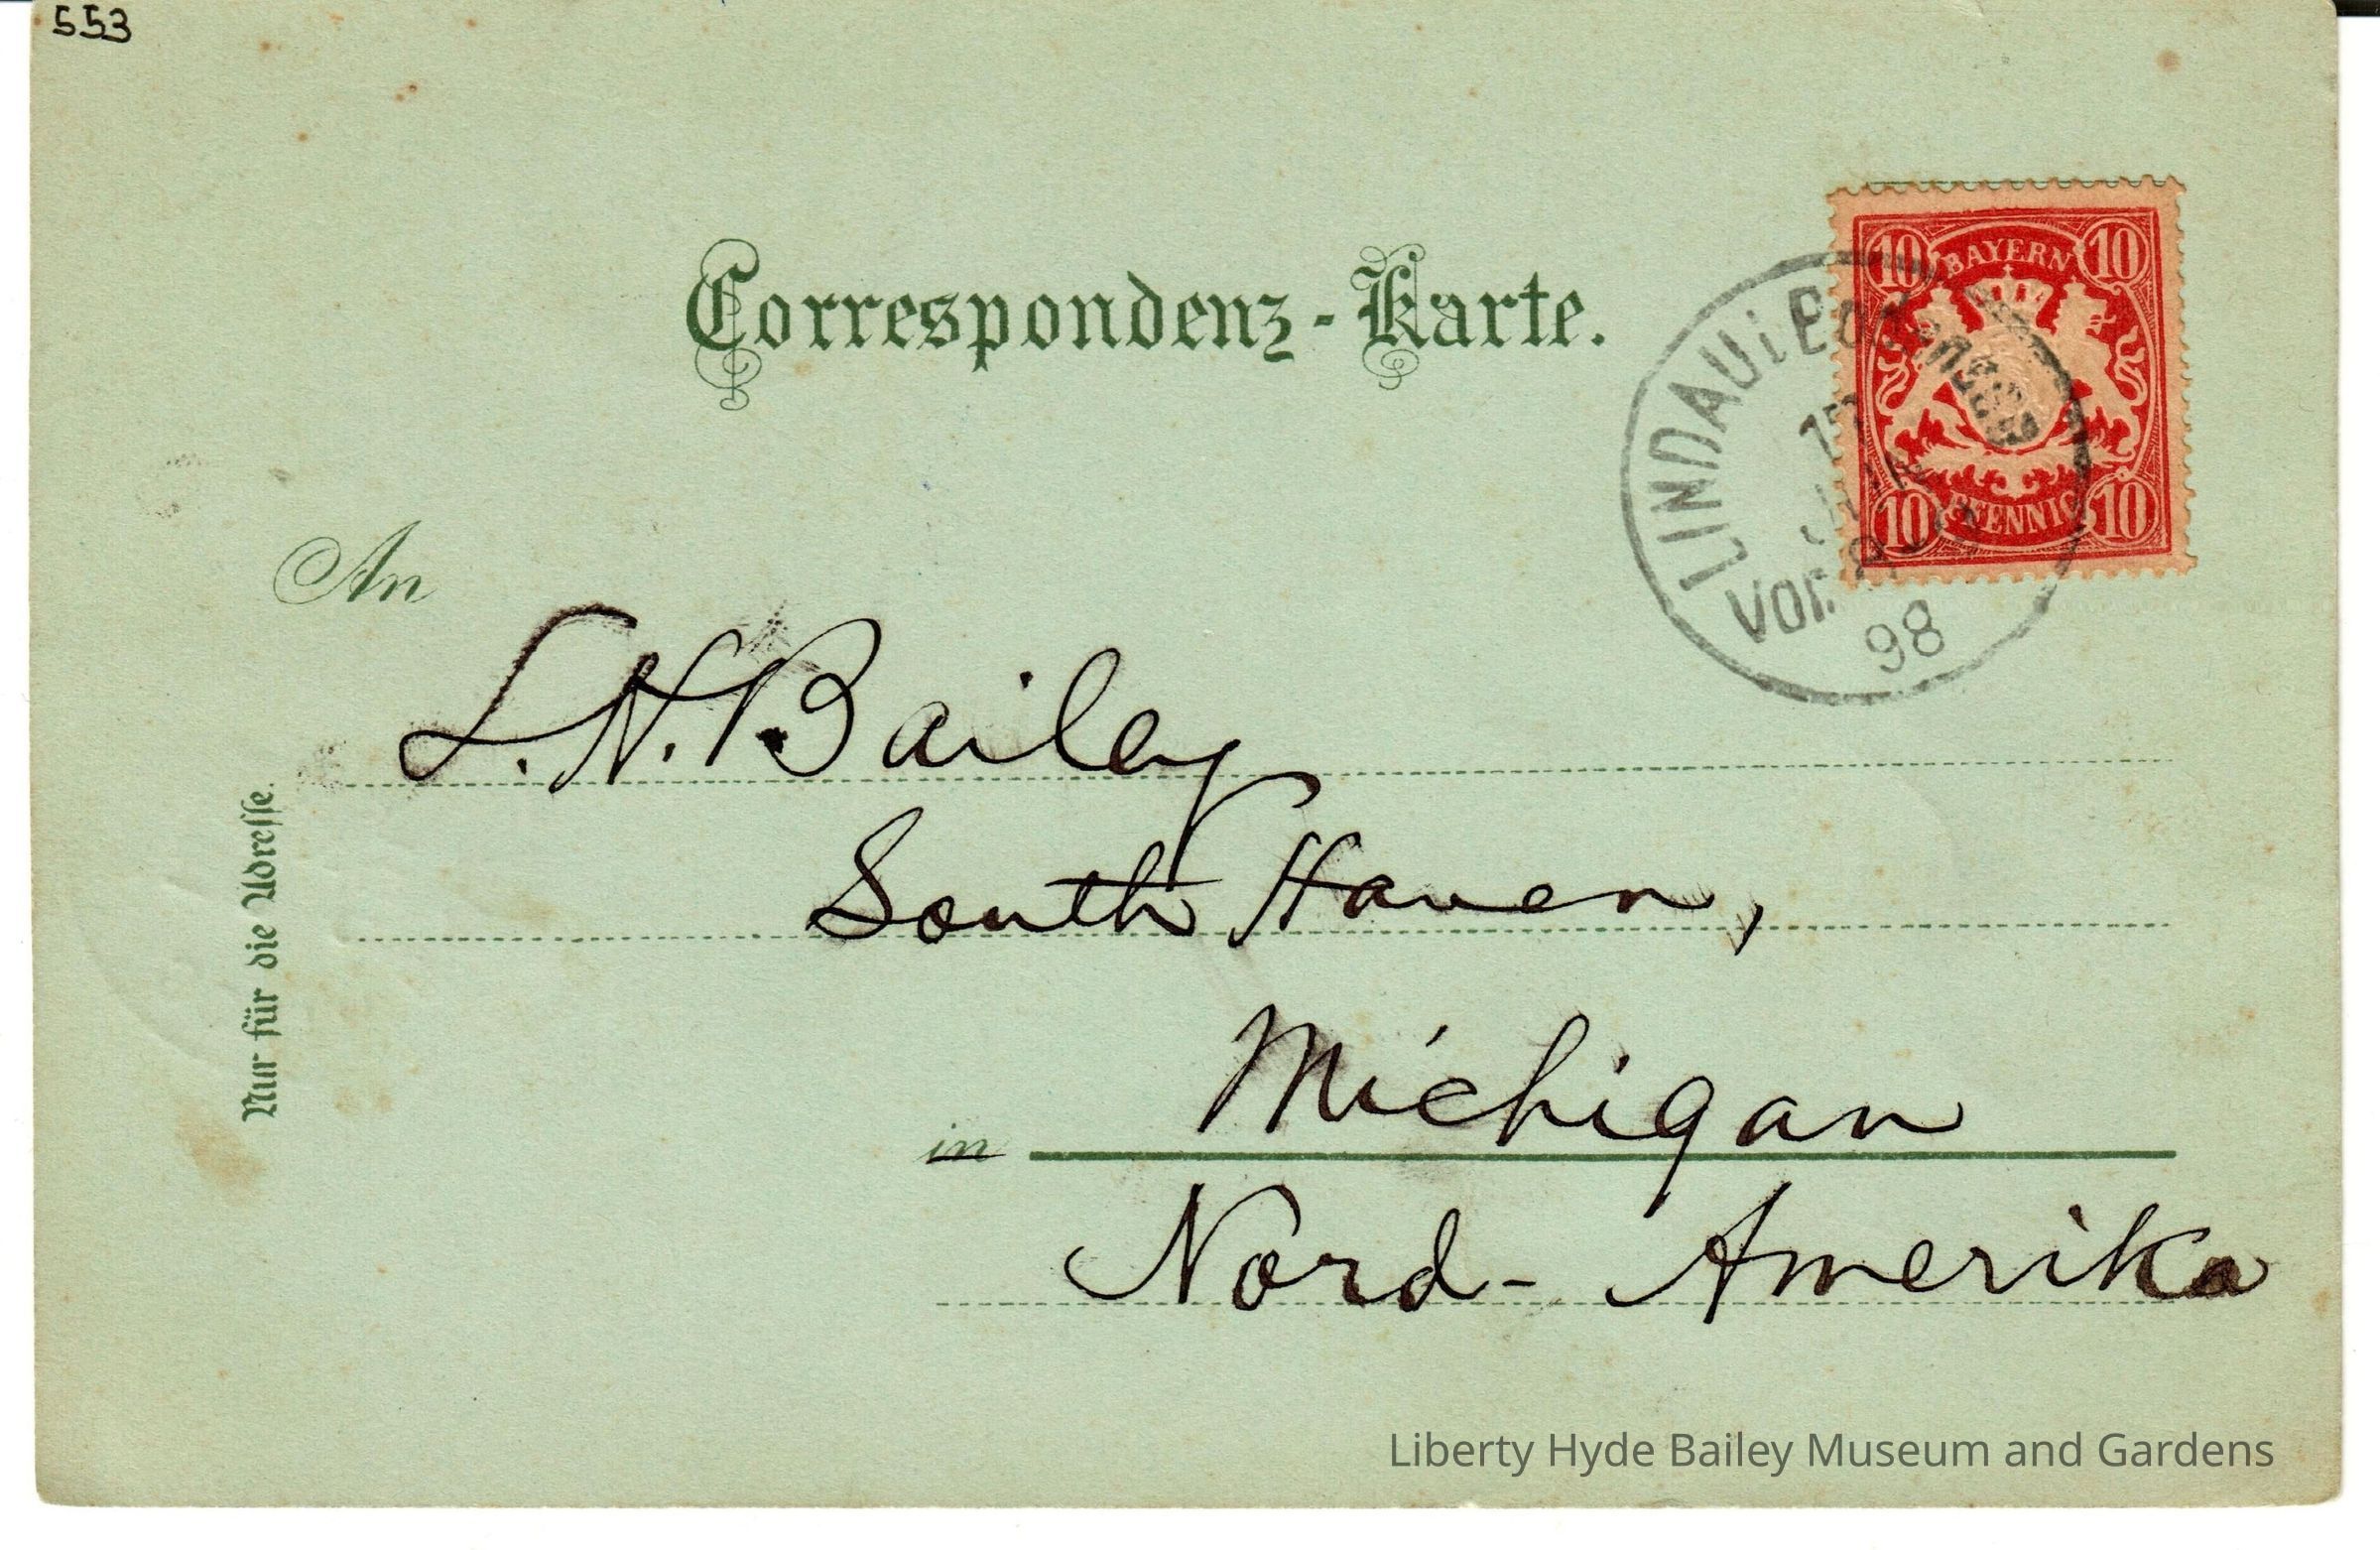 553
Correspondenz-Karte.
BAYERN
10 10
10 10
PFENNIG
LINDAU i Bodensee
Vor.
98
An
L. H. Bailey
South Haven,
Michigan
in
Nord-Amerika
Nur für die Adresse.
Liberty Hyde Bailey Museum and Gardens